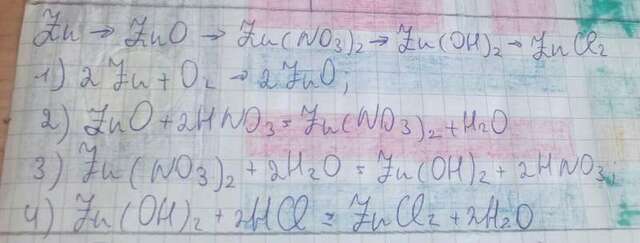 Zn → ZnO → Zn(NO3)2 → Zn(OH)2 → ZnCl2
1) 2Zn + O2 → 2ZnO;
2) ZnO + 2HNO3 = Zn(NO3)2 + H2O
3) Zn(NO3)2 + 2H2O = Zn(OH)2 + 2HNO3;
4) Zn(OH)2 + 2HCl = ZnCl2 + 2H2O